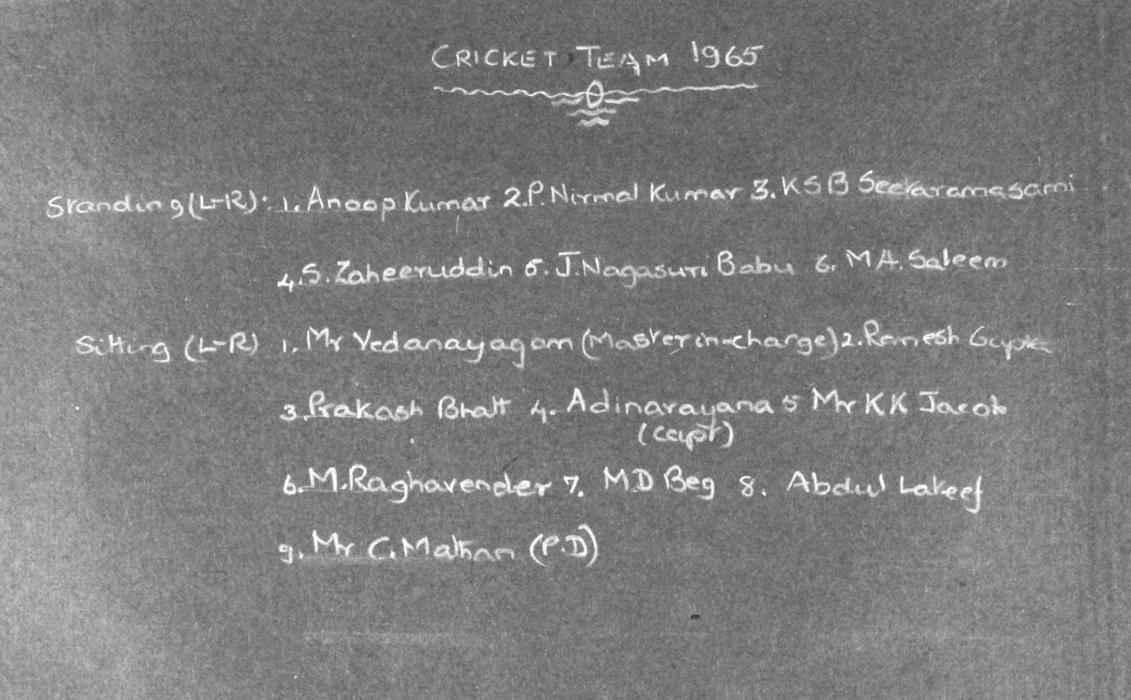 CRICKET TEAM 1965
Standing (L-R): 1. Anoop Kumar 2. P. Nirmal Kumar 3. KSB Seetaramasami
4. S. Zaheeruddin 5. J. Nagasuri Babu 6. M A. Saleem
Sitting (L-R) 1. Mr Vedanayagam (Master in-charge) 2. Ramesh Gupta
3. Prakash Bhatt 4. Adinarayana 5 Mr K K Jacob
(capt)
6. M. Raghavender 7. M D Beg 8. Abdul Lateef
9. Mr C. Mathan (P.D)